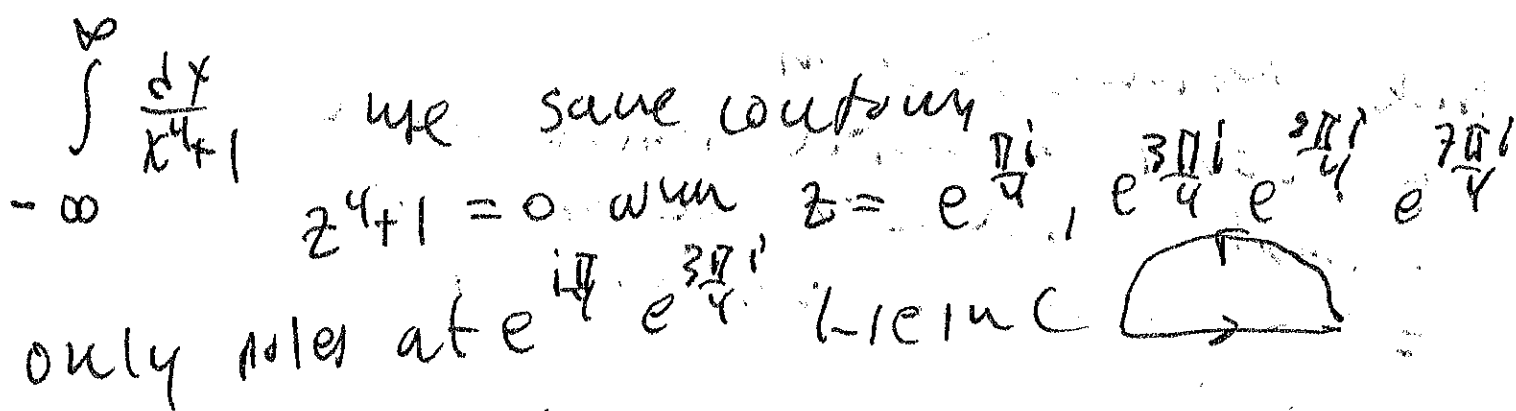 ∫_{-∞}^{∞} dx/(x⁴+1) use same contour
z⁴+1 = 0 when z = e^{πi/4}, e^{3πi/4} e^{5πi/4} e^{7πi/4}
only poles at e^{iπ/4} e^{3πi/4} lie in C